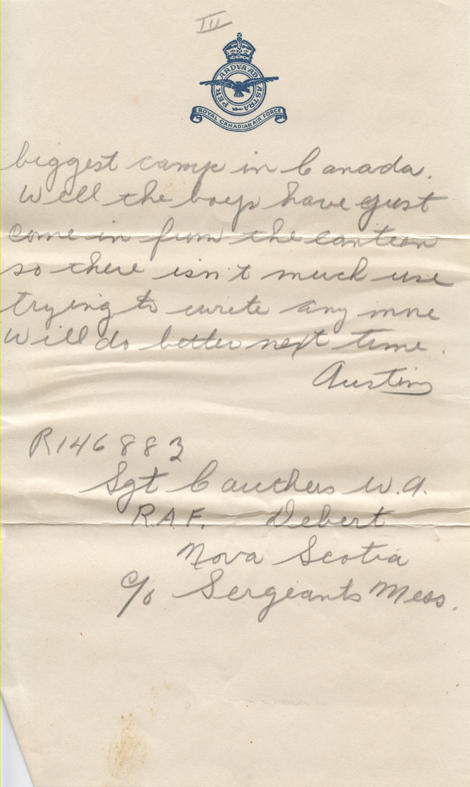 III
PER ARDVA AD ASTRA
ROYAL CANADIAN AIR FORCE
biggest camp in Canada.
Well the boys have just
come in from the canteen
so there isn't much use
trying to write any more
Will do better next time.
Austin
R146883
Sgt Cauthers W.A.
R.A.F. Debert
Nova Scotia
c/o Sergeants Mess.